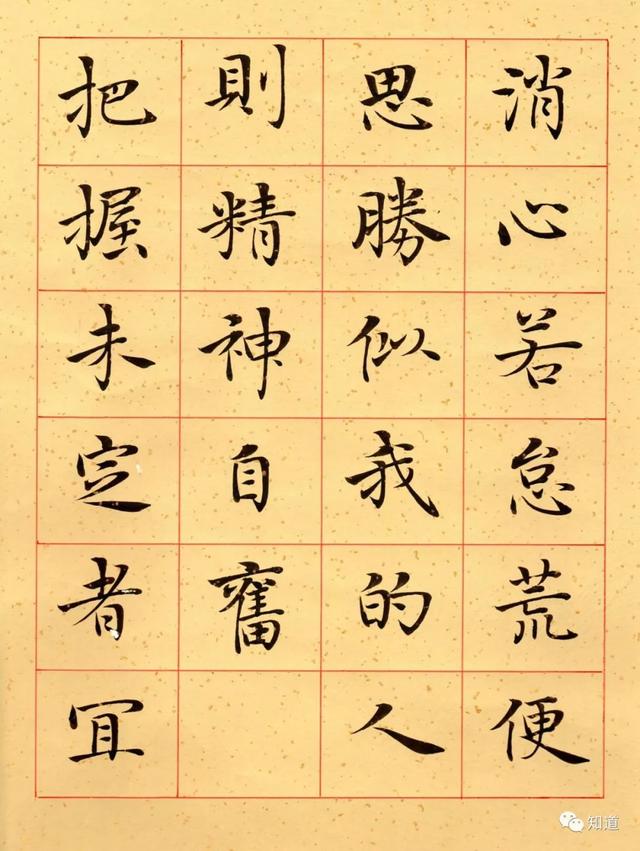 消心若怠荒便
思勝似我的人
則精神自奮
把握未定者宜
知道